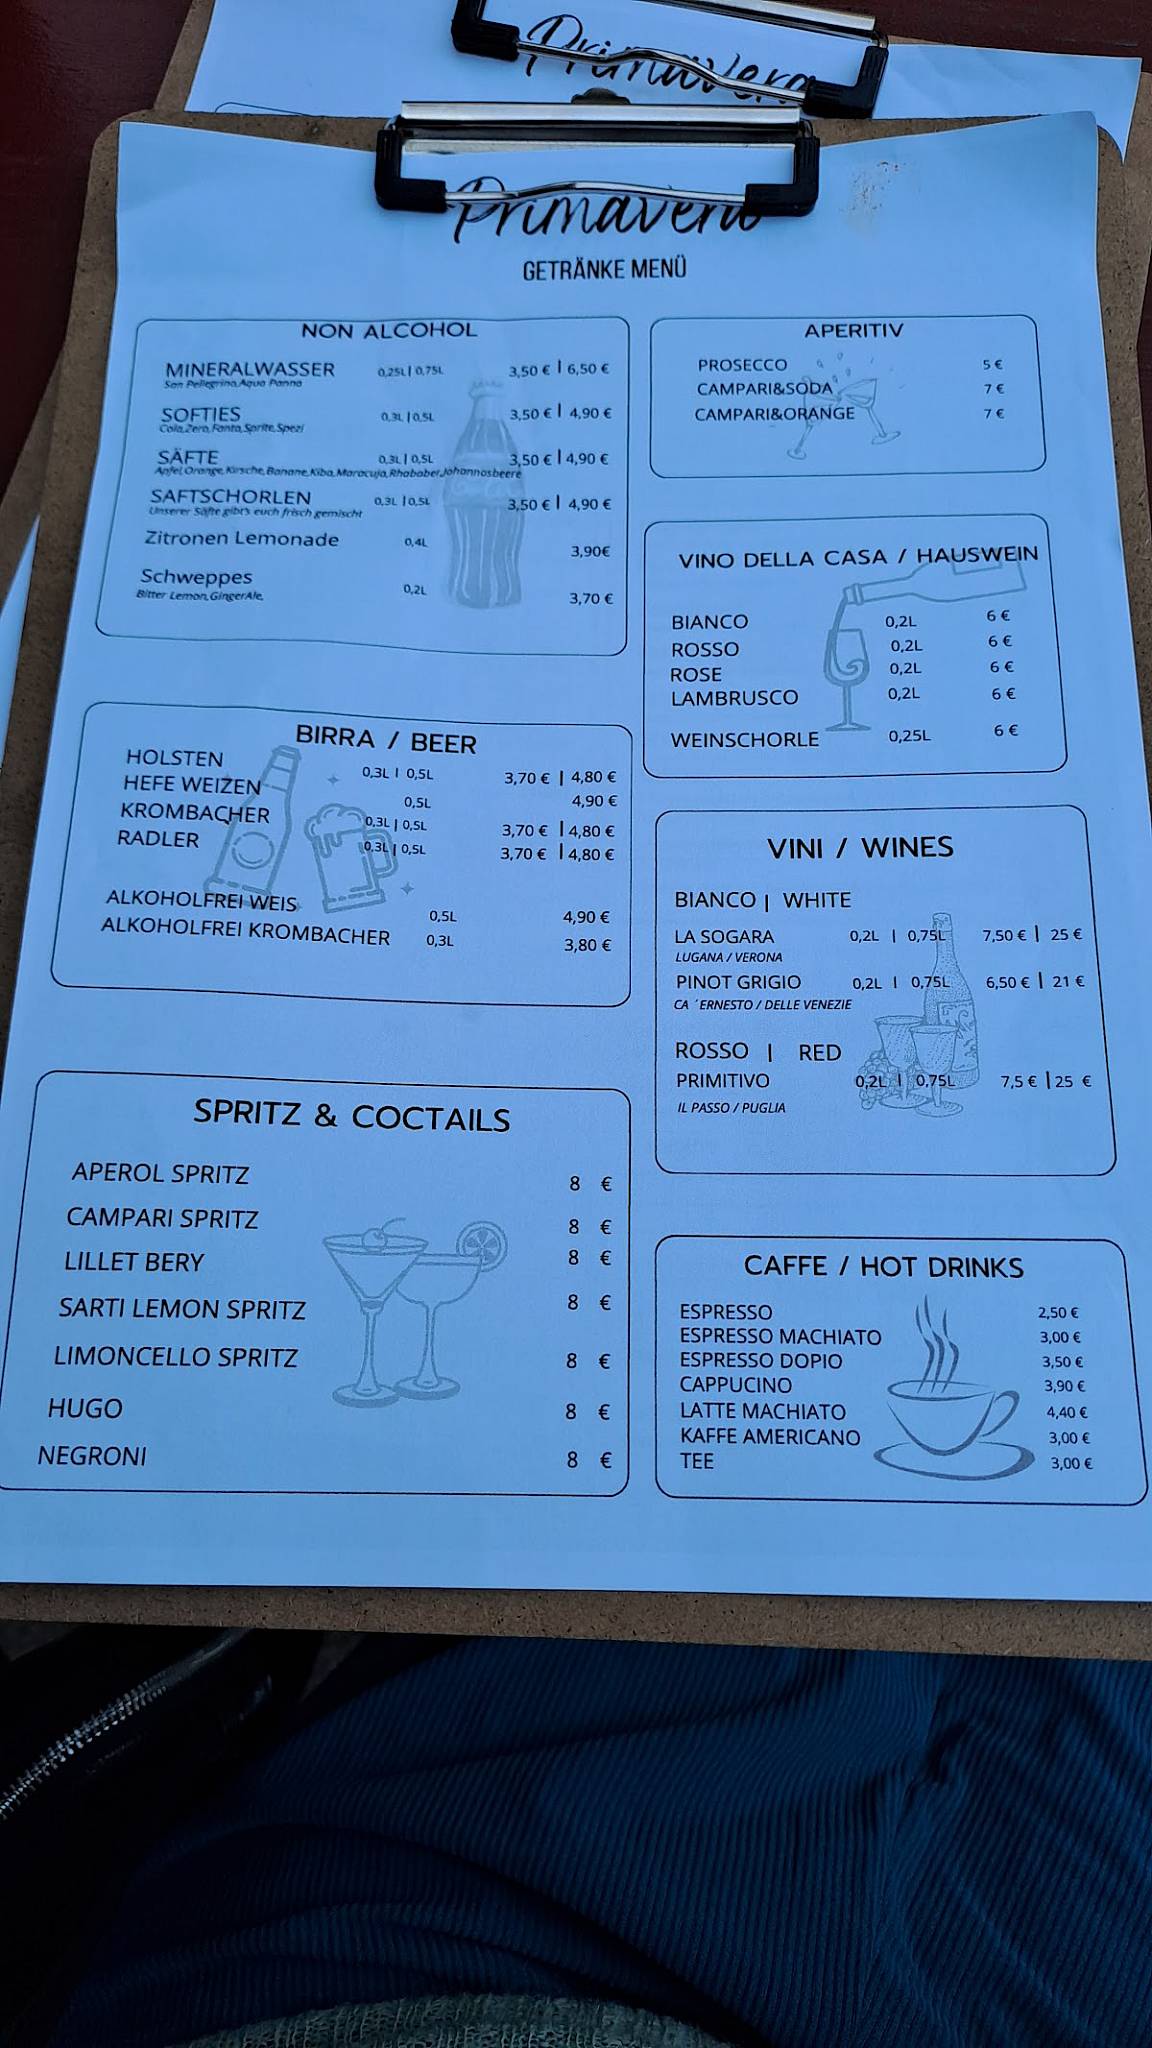 Primavera
Primavera
GETRÄNKE MENÜ
NON ALCOHOL
MINERALWASSER 0,25L | 0,75L 3,50 € | 6,50 €
San Pellegrino,Aqua Panna
SOFTIES 0,3L | 0,5L 3,50 € | 4,90 €
Cola,Zero,Fanta,Sprite,Spezi
SÄFTE 0,3L | 0,5L 3,50 € | 4,90 €
Apfel,Orange,Kirsche,Banane,Kiba,Maracuja,Rhababer,Johannosbeere
SAFTSCHORLEN 0,3L | 0,5L 3,50 € | 4,90 €
Unserer Säfte gibt's euch frisch gemischt
Zitronen Lemonade 0,4L 3,90€
Schweppes 0,2L 3,70 €
Bitter Lemon,GingerAle,
BIRRA / BEER
HOLSTEN 0,3L | 0,5L 3,70 € | 4,80 €
HEFE WEIZEN 0,5L 4,90 €
KROMBACHER 0,3L | 0,5L 3,70 € | 4,80 €
RADLER 0,3L | 0,5L 3,70 € | 4,80 €
ALKOHOLFREI WEIS 0,5L 4,90 €
ALKOHOLFREI KROMBACHER 0,3L 3,80 €
SPRITZ & COCTAILS
APEROL SPRITZ 8 €
CAMPARI SPRITZ 8 €
LILLET BERY 8 €
SARTI LEMON SPRITZ 8 €
LIMONCELLO SPRITZ 8 €
HUGO 8 €
NEGRONI 8 €
APERITIV
PROSECCO 5 €
CAMPARI&SODA 7 €
CAMPARI&ORANGE 7 €
VINO DELLA CASA / HAUSWEIN
BIANCO 0,2L 6 €
ROSSO 0,2L 6 €
ROSE 0,2L 6 €
LAMBRUSCO 0,2L 6 €
WEINSCHORLE 0,25L 6 €
VINI / WINES
BIANCO | WHITE
LA SOGARA 0,2L | 0,75L 7,50 € | 25 €
LUGANA / VERONA
PINOT GRIGIO 0,2L | 0,75L 6,50 € | 21 €
CA ´ERNESTO / DELLE VENEZIE
ROSSO | RED
PRIMITIVO 0,2L | 0,75L 7,5 € | 25 €
IL PASSO / PUGLIA
CAFFE / HOT DRINKS
ESPRESSO 2,50 €
ESPRESSO MACHIATO 3,00 €
ESPRESSO DOPIO 3,50 €
CAPPUCINO 3,90 €
LATTE MACHIATO 4,40 €
KAFFE AMERICANO 3,00 €
TEE 3,00 €